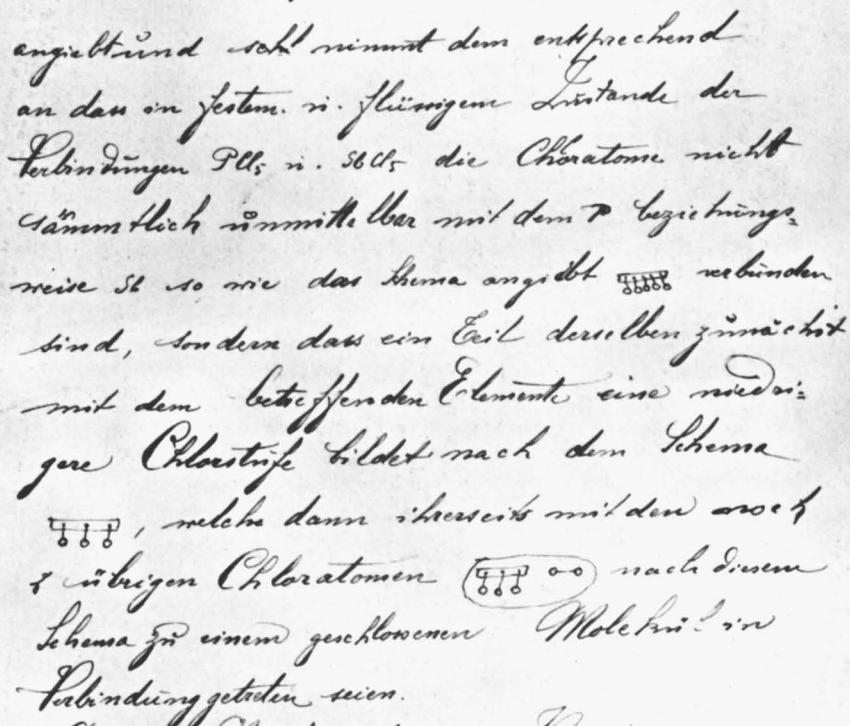 angiebt und nimmt dem entsprechend
an dass in festem. u. flüssigem Zustande der
Verbindungen PCl₅ u. SbCl₅ die Chloratome nicht
sämmtlich unmittelbar mit dem P beziehungs-
weise Sb so wie das Schema angibt verbunden
sind, sondern dass ein Teil derselben zunächst
mit dem betreffenden Elemente eine niedri-
gere Chlorstufe bildet nach dem Schema
, welche dann ihrerseits mit den noch
übrigen Chloratomen nach diesem
Schema zu einem geschlossenen Molekül in
Verbindung getreten seien.